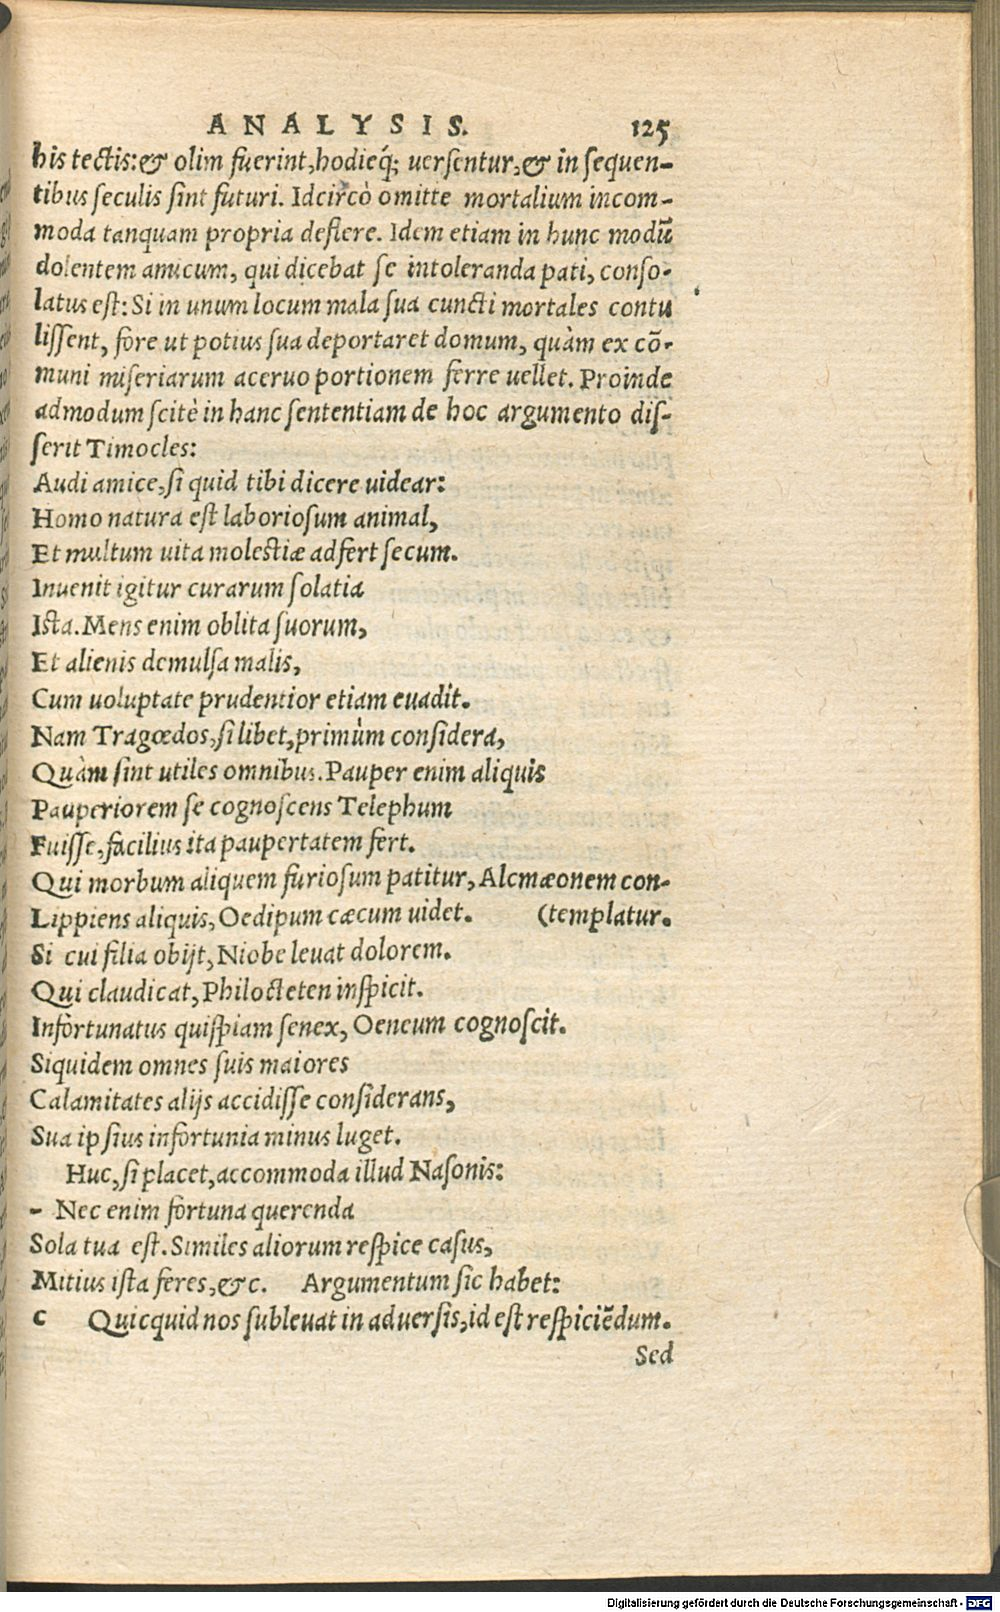 ANALYSIS. 125
his tectis:& olim fuerint,hodieq́; uersentur,& in sequen-
tibus seculis sint futuri. Idcircò omitte mortalium incom-
moda tanquam propria deflere. Idem etiam in hunc modū
dolentem amicum, qui dicebat se intoleranda pati, conso-
latus est: Si in unum locum mala sua cuncti mortales contu
lissent, fore ut potius sua deportaret domum, quàm ex cō-
muni miseriarum aceruo portionem ferre uellet. Proinde
admodum scitè in hanc sententiam de hoc argumento dis-
serit Timocles:
Audi amice,si quid tibi dicere uidear:
Homo natura est laboriosum animal,
Et multum uita molestiæ adfert secum.
Inuenit igitur curarum solatia
Ista.Mens enim oblita suorum,
Et alienis demulsa malis,
Cum uoluptate prudentior etiam euadit.
Nam Tragœdos,si libet,primùm considera,
Quàm sint utiles omnibus.Pauper enim aliquis
Pauperiorem se cognoscens Telephum
Fuisse,facilius ita paupertatem fert.
Qui morbum aliquem furiosum patitur,Alcmæonem con-
Lippiens aliquis,Oedipum cæcum uidet. (templatur.
Si cui filia obijt,Niobe leuat dolorem.
Qui claudicat,Philocteten inspicit.
Infortunatus quispiam senex,Oeneum cognoscit.
Siquidem omnes suis maiores
Calamitates alijs accidisse considerans,
Sua ipsius infortunia minus luget.
Huc,si placet,accommoda illud Nasonis:
- Nec enim fortuna querenda
Sola tua est.Similes aliorum respice casus,
Mitius ista feres,&c. Argumentum sic habet:
C Quicquid nos subleuat in aduersis,id est respiciēdum.
Sed
Digitalisierung gefördert durch die Deutsche Forschungsgemeinschaft - DFG